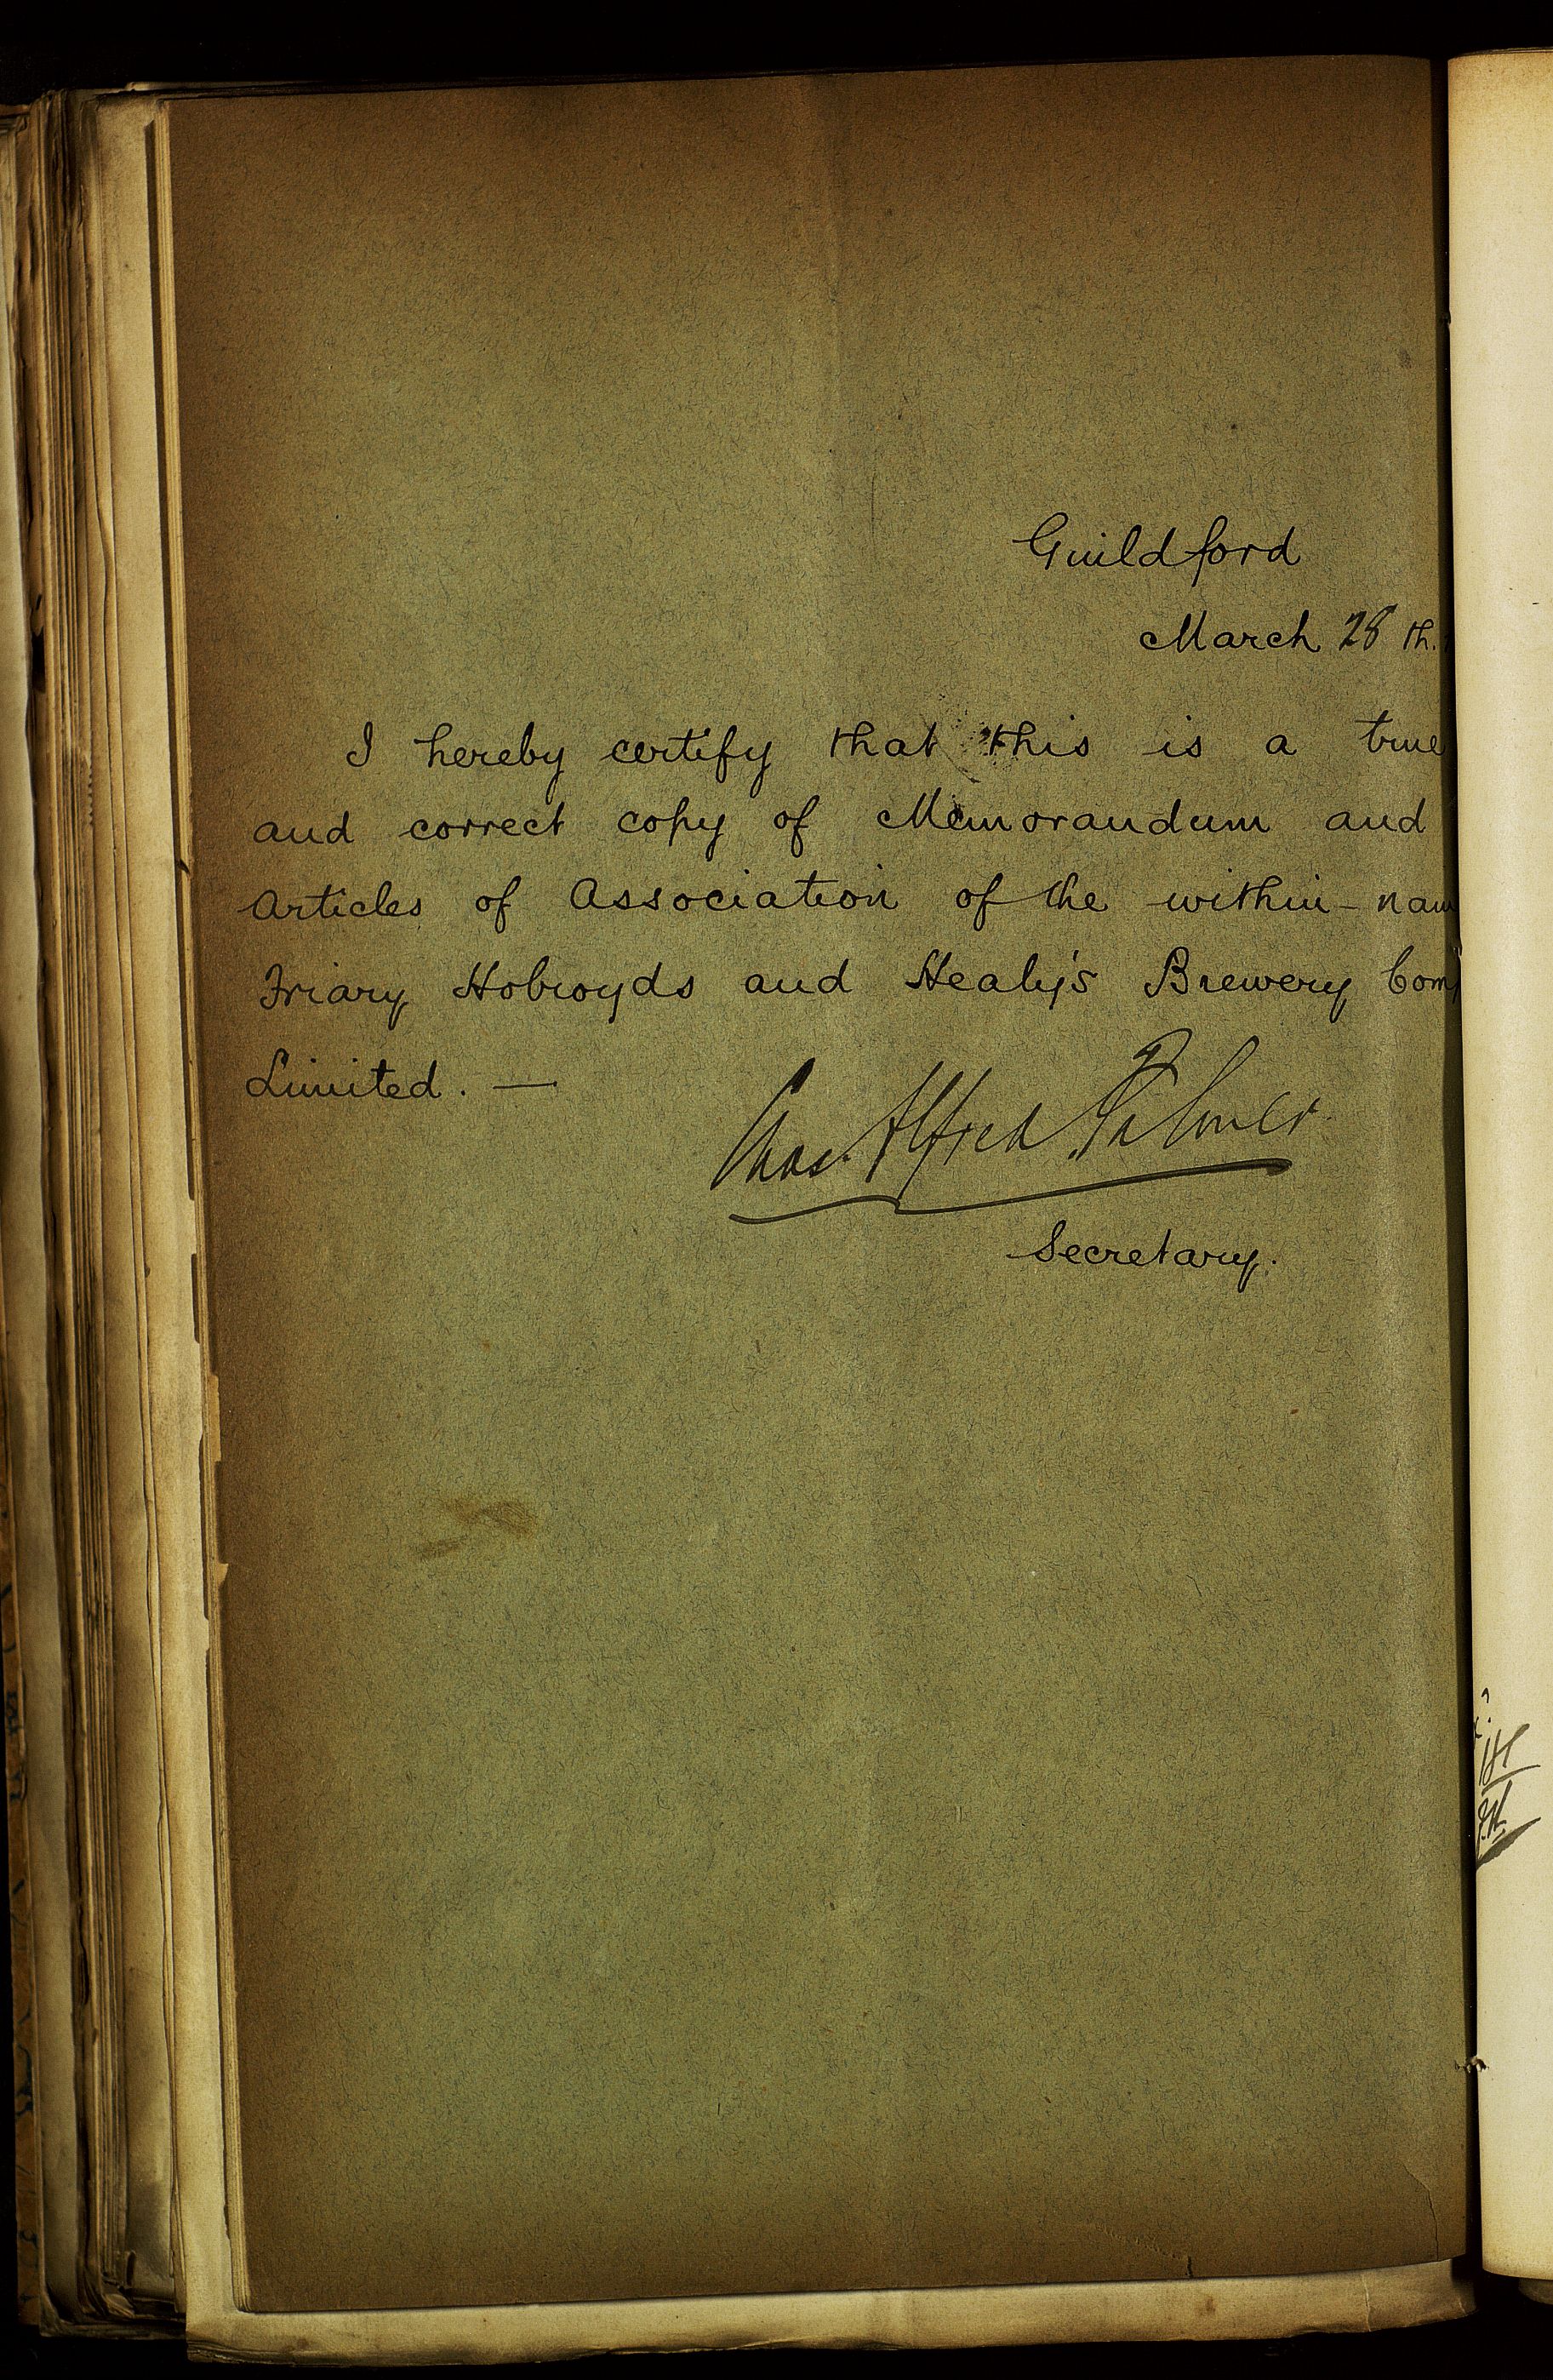 Guildford
March 28th.
I hereby certify that this is a true
and correct copy of Memorandum and
Articles of Association of the within-nam
Friary Holroyds and Healy's Brewery Com
Limited. —
Chas. Alfred Palmer
Secretary.